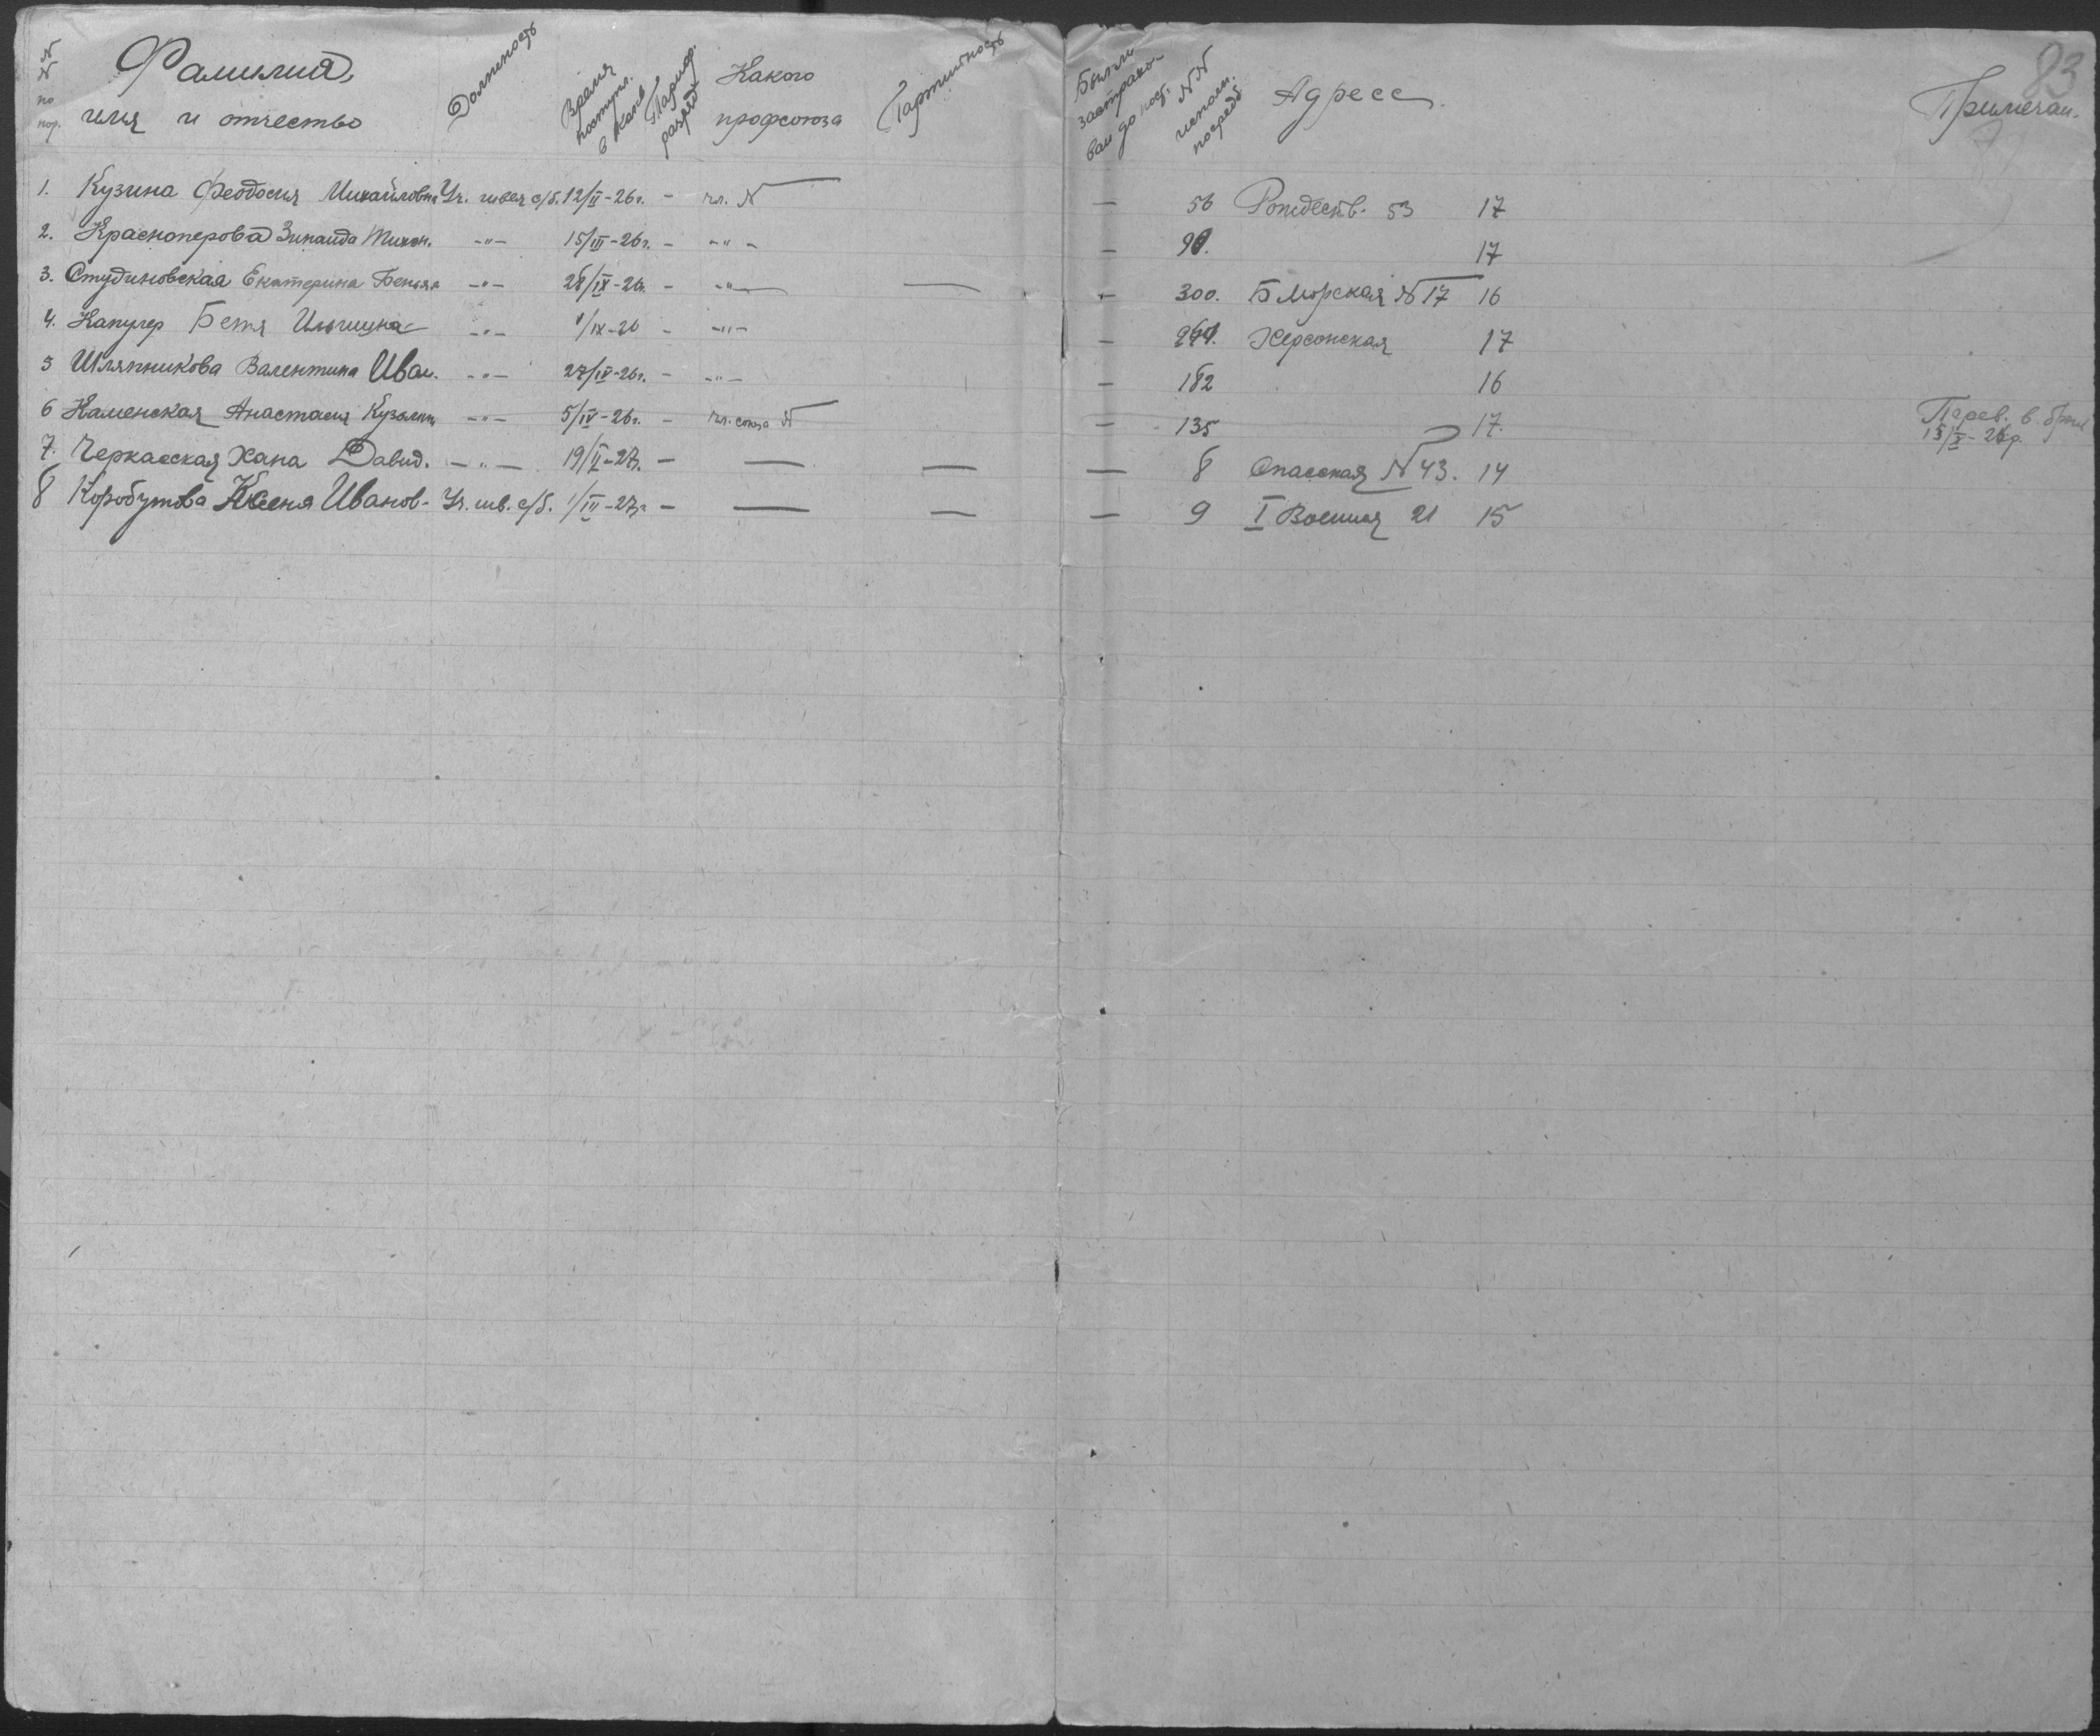 83
№№ по пор. Фамилия, имя и отчество Должность Время поступл. в Тариф. разряд Какого профсоюза Партийность Был ли застрахован до пост. №№ Адресс. Примечан.
1. Кузина Феодосия Михайловна Уч. швея с/б. 12/II-26г. - чл. N — 56 Рождеств. 53 17
2. Красноперова Зинаида Тихон. -"- 15/III-26г. - -"- — 17
3. Студиновская Екатерина -"- 28/IX-26г. - -"- — - 300. Б Морская N 17 16
4. Капулер Бетя Ильинична -"- /IX-26 - -"- — Херсонская 17
5 Шляпникова Валентина Иван. -"- 27/IV-26г. - -"- — 182 16
6 Каменская Анастасия Кузьмин -"- 5/IV-26г. - чл. союза N — 135 17. Перев. в
15/X-26г.
7. Черкасская Хана Давид. -"- 19/II-27г. — — — — 8 Спасская N 43. 14
8 Коробутова Ксеня Иванов- Уч. шв. с/б. 1/III-27г. — — — — 9 I Военная 21 15